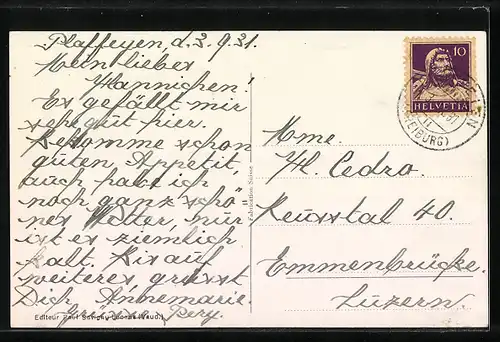 Plaffeyen, d. 3. 9. 31.
Mein lieber
Hannichen!
Es gefällt mir
sehr gut hier.
Bekomme schon
guten Appetit,
auch habe ich
noch ganz schö-
nes Wetter, nur
ist es ziemlich
kalt. Bis auf
weiteres grüsst
Dich Annemarie.
Grüsse Pery.
Editeur Paul Savigny (Vaud.)
Fabrication Suisse
10
HELVETIA
(FREIBURG)
Mme.
H. Cedro.
Reusstal 40.
Emmenbrücke.
Luzern.